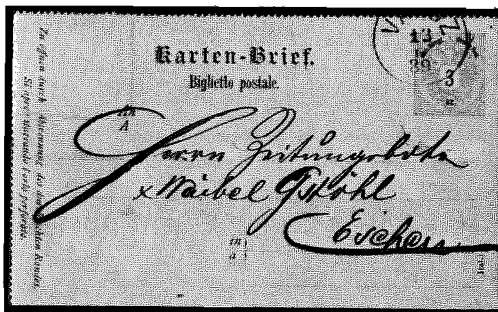 Karten-Brief.
Biglietto postale.
13
3
An
A
Herrn Zeitungsbote
x Waibel Gstöhl
in
a
Eschen
Zu öffnen durch Abtrennung des durchlochten Randes.
Si apre staccando l'orlo perforato.